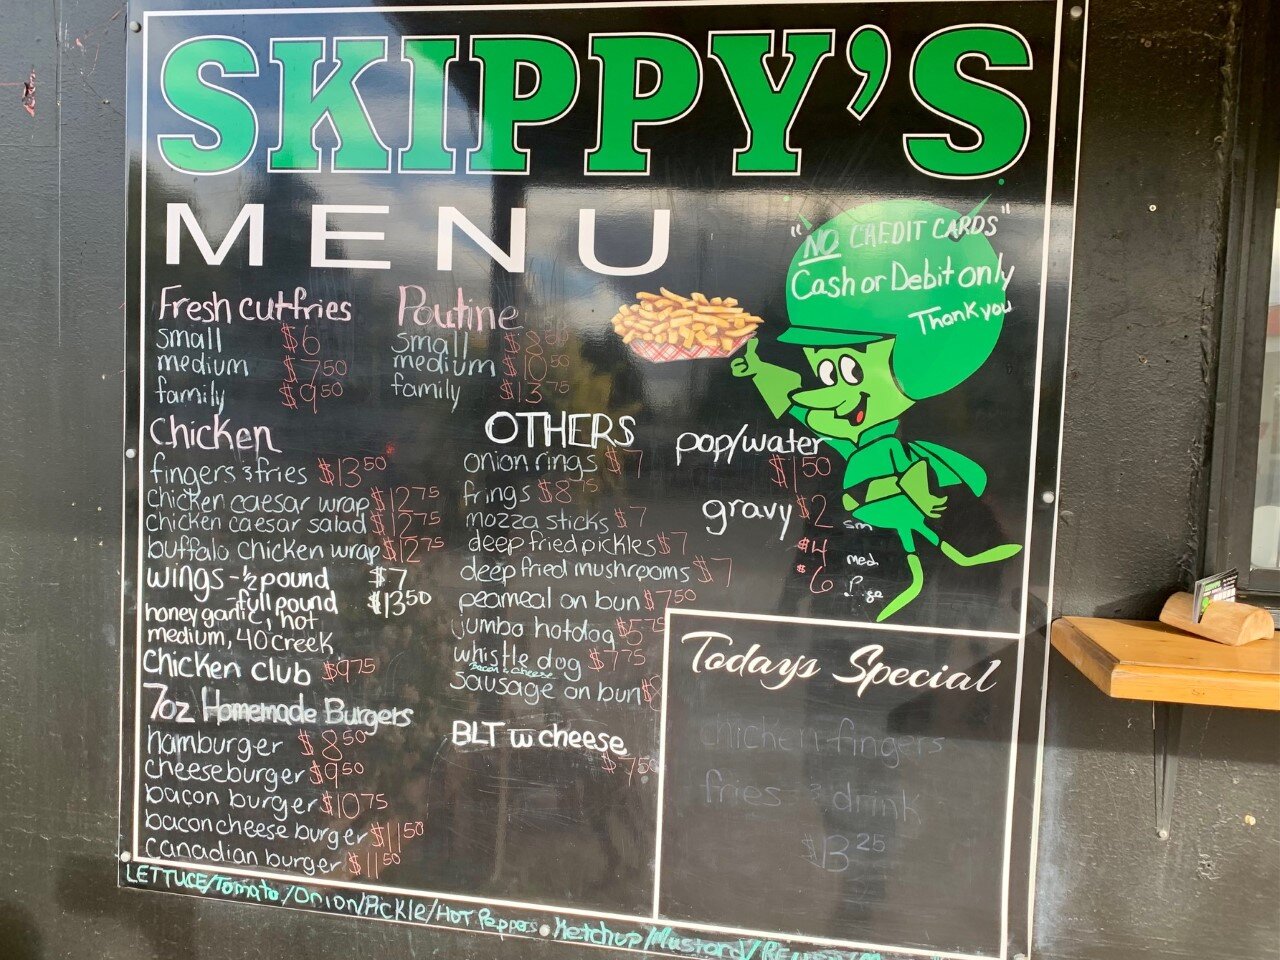 SKIPPY'S
MENU
"NO CREDIT CARDS"
Cash or Debit only
Thank you
Fresh cut fries
small $6
medium $7.50
family $9.50
Poutine
small $8.50
medium $10.50
family $13.75
Chicken
fingers & fries $13.50
chicken caesar wrap $12.75
chicken caesar salad $12.75
buffalo chicken wrap $12.75
wings - 1/2 pound $7
- full pound $13.50
honey garlic, hot
medium, 40 creek
chicken club $9.75
7oz Homemade Burgers
hamburger $8.50
cheeseburger $9.50
bacon burger $10.75
bacon cheese burger $11.50
canadian burger $11.50
OTHERS
onion rings $7
frings $8.75
mozza sticks $7
deep fried pickles $7
deep fried mushrooms $7
peameal on bun $7.50
jumbo hotdog $5.75
whistle dog $7.75
Bacon & cheese
sausage on bun $8
BLT w cheese
$7.50
pop/water
$1.50
gravy $2 sm
$4 med
$6
Todays Special
chicken fingers
fries & drink
$13.25
LETTUCE/Tomato/Onion/Pickle/Hot Peppers. Ketchup/Mustard/